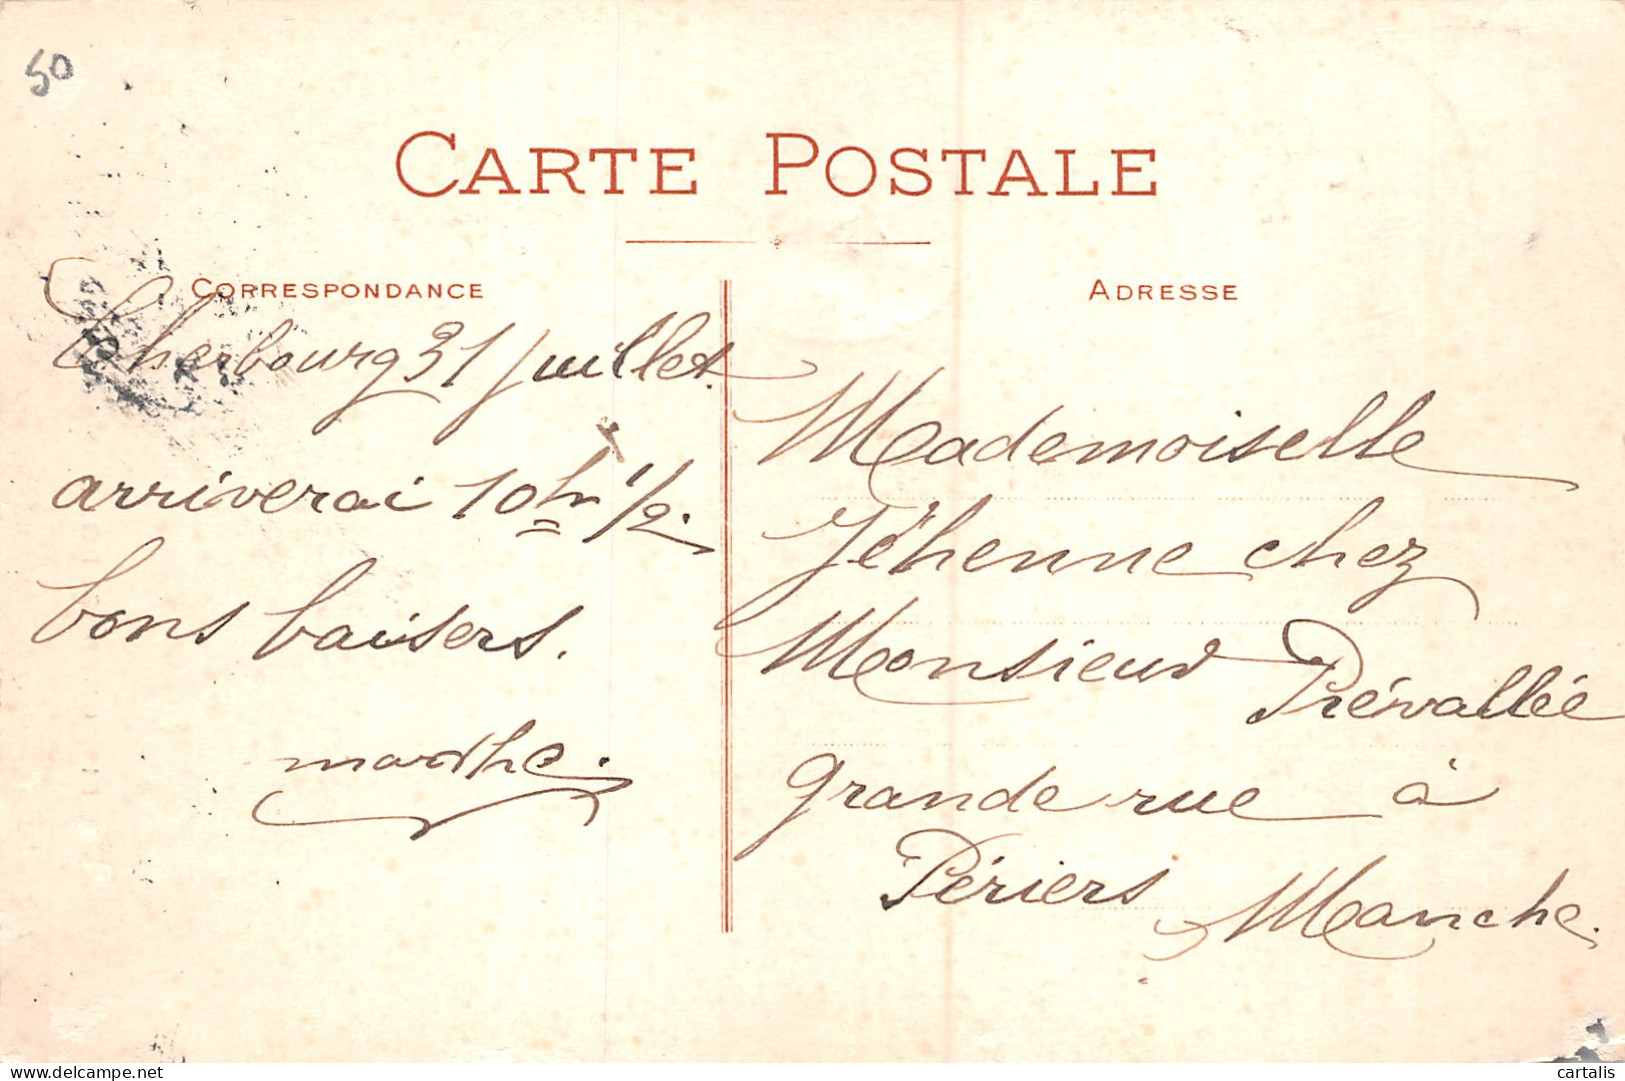 50
CARTE POSTALE
CORRESPONDANCE
Cherbourg 31 Juillet.
arriverai 10 hr 1/2.
bons baisers.
marthe.
ADRESSE
Mademoiselle
Jéhenne chez
Monsieur Prévallée
grande rue à
Périers Manche.
www.delcampe.net
cartalis